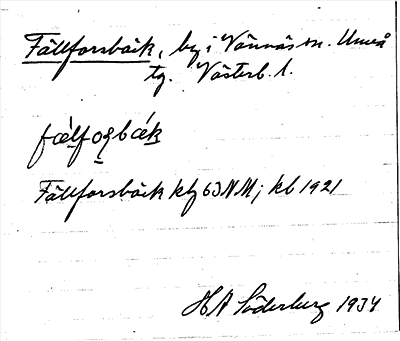 Fällforsbäck, by i Vännäs sn. Umeå
tg. Västerb. l.
fælfoȿbæk
Fällforsbäck kby 63 NM; kb 1921
H A Söderberg 1934